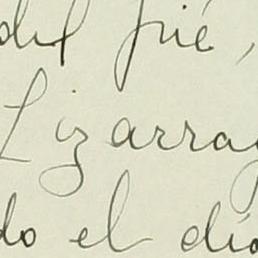 del fué,
Lizarra
do el día